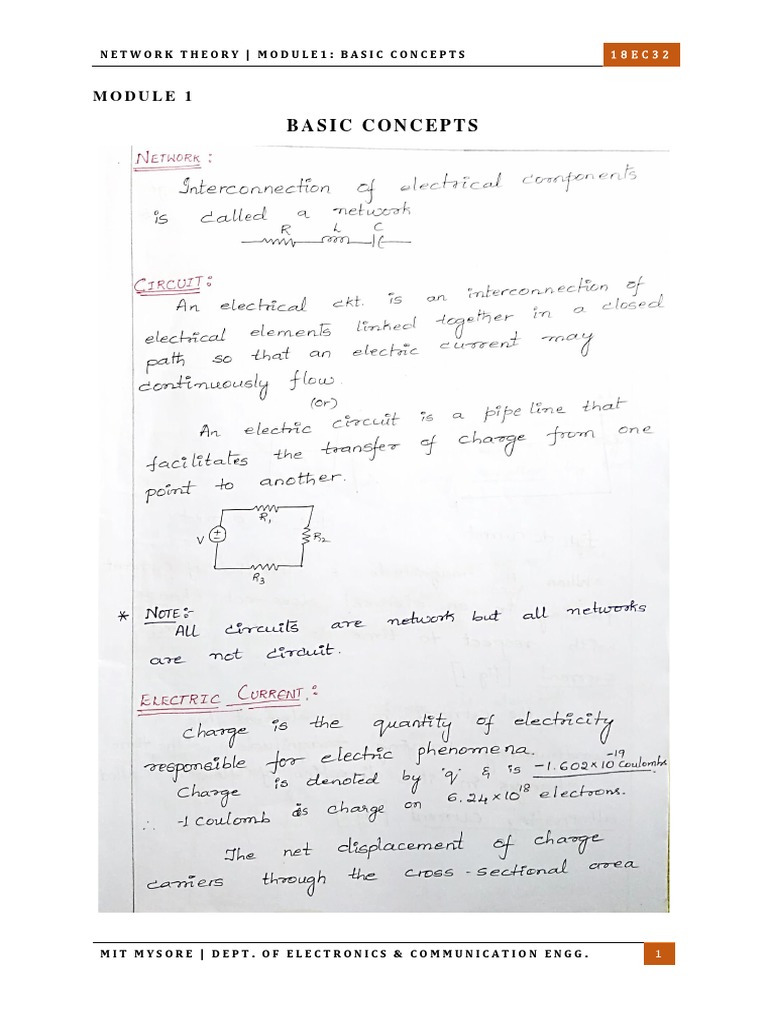 NETWORK THEORY | MODULE1: BASIC CONCEPTS 18EC32
MODULE 1
BASIC CONCEPTS
NETWORK:
Interconnection of electrical components
is called a network
R L C
CIRCUIT:
An electrical ckt. is an interconnection of
electrical elements linked together in a closed
path so that an electric current may
continuously flow.
(or)
An electric circuit is a pipeline that
facilitates the transfer of charge from one
point to another.
R1
V R2
R3
* NOTE:-
All circuits are network but all networks
are not circuit.
ELECTRIC CURRENT:
Charge is the quantity of electricity
responsible for electric phenomena.
Charge is denoted by 'q' & is -1.602×10^-19 Coulombs
∴ -1 Coulomb is charge on 6.24×10^18 electrons.
The net displacement of charge
carriers through the cross-sectional area
MIT MYSORE | DEPT. OF ELECTRONICS & COMMUNICATION ENGG. 1